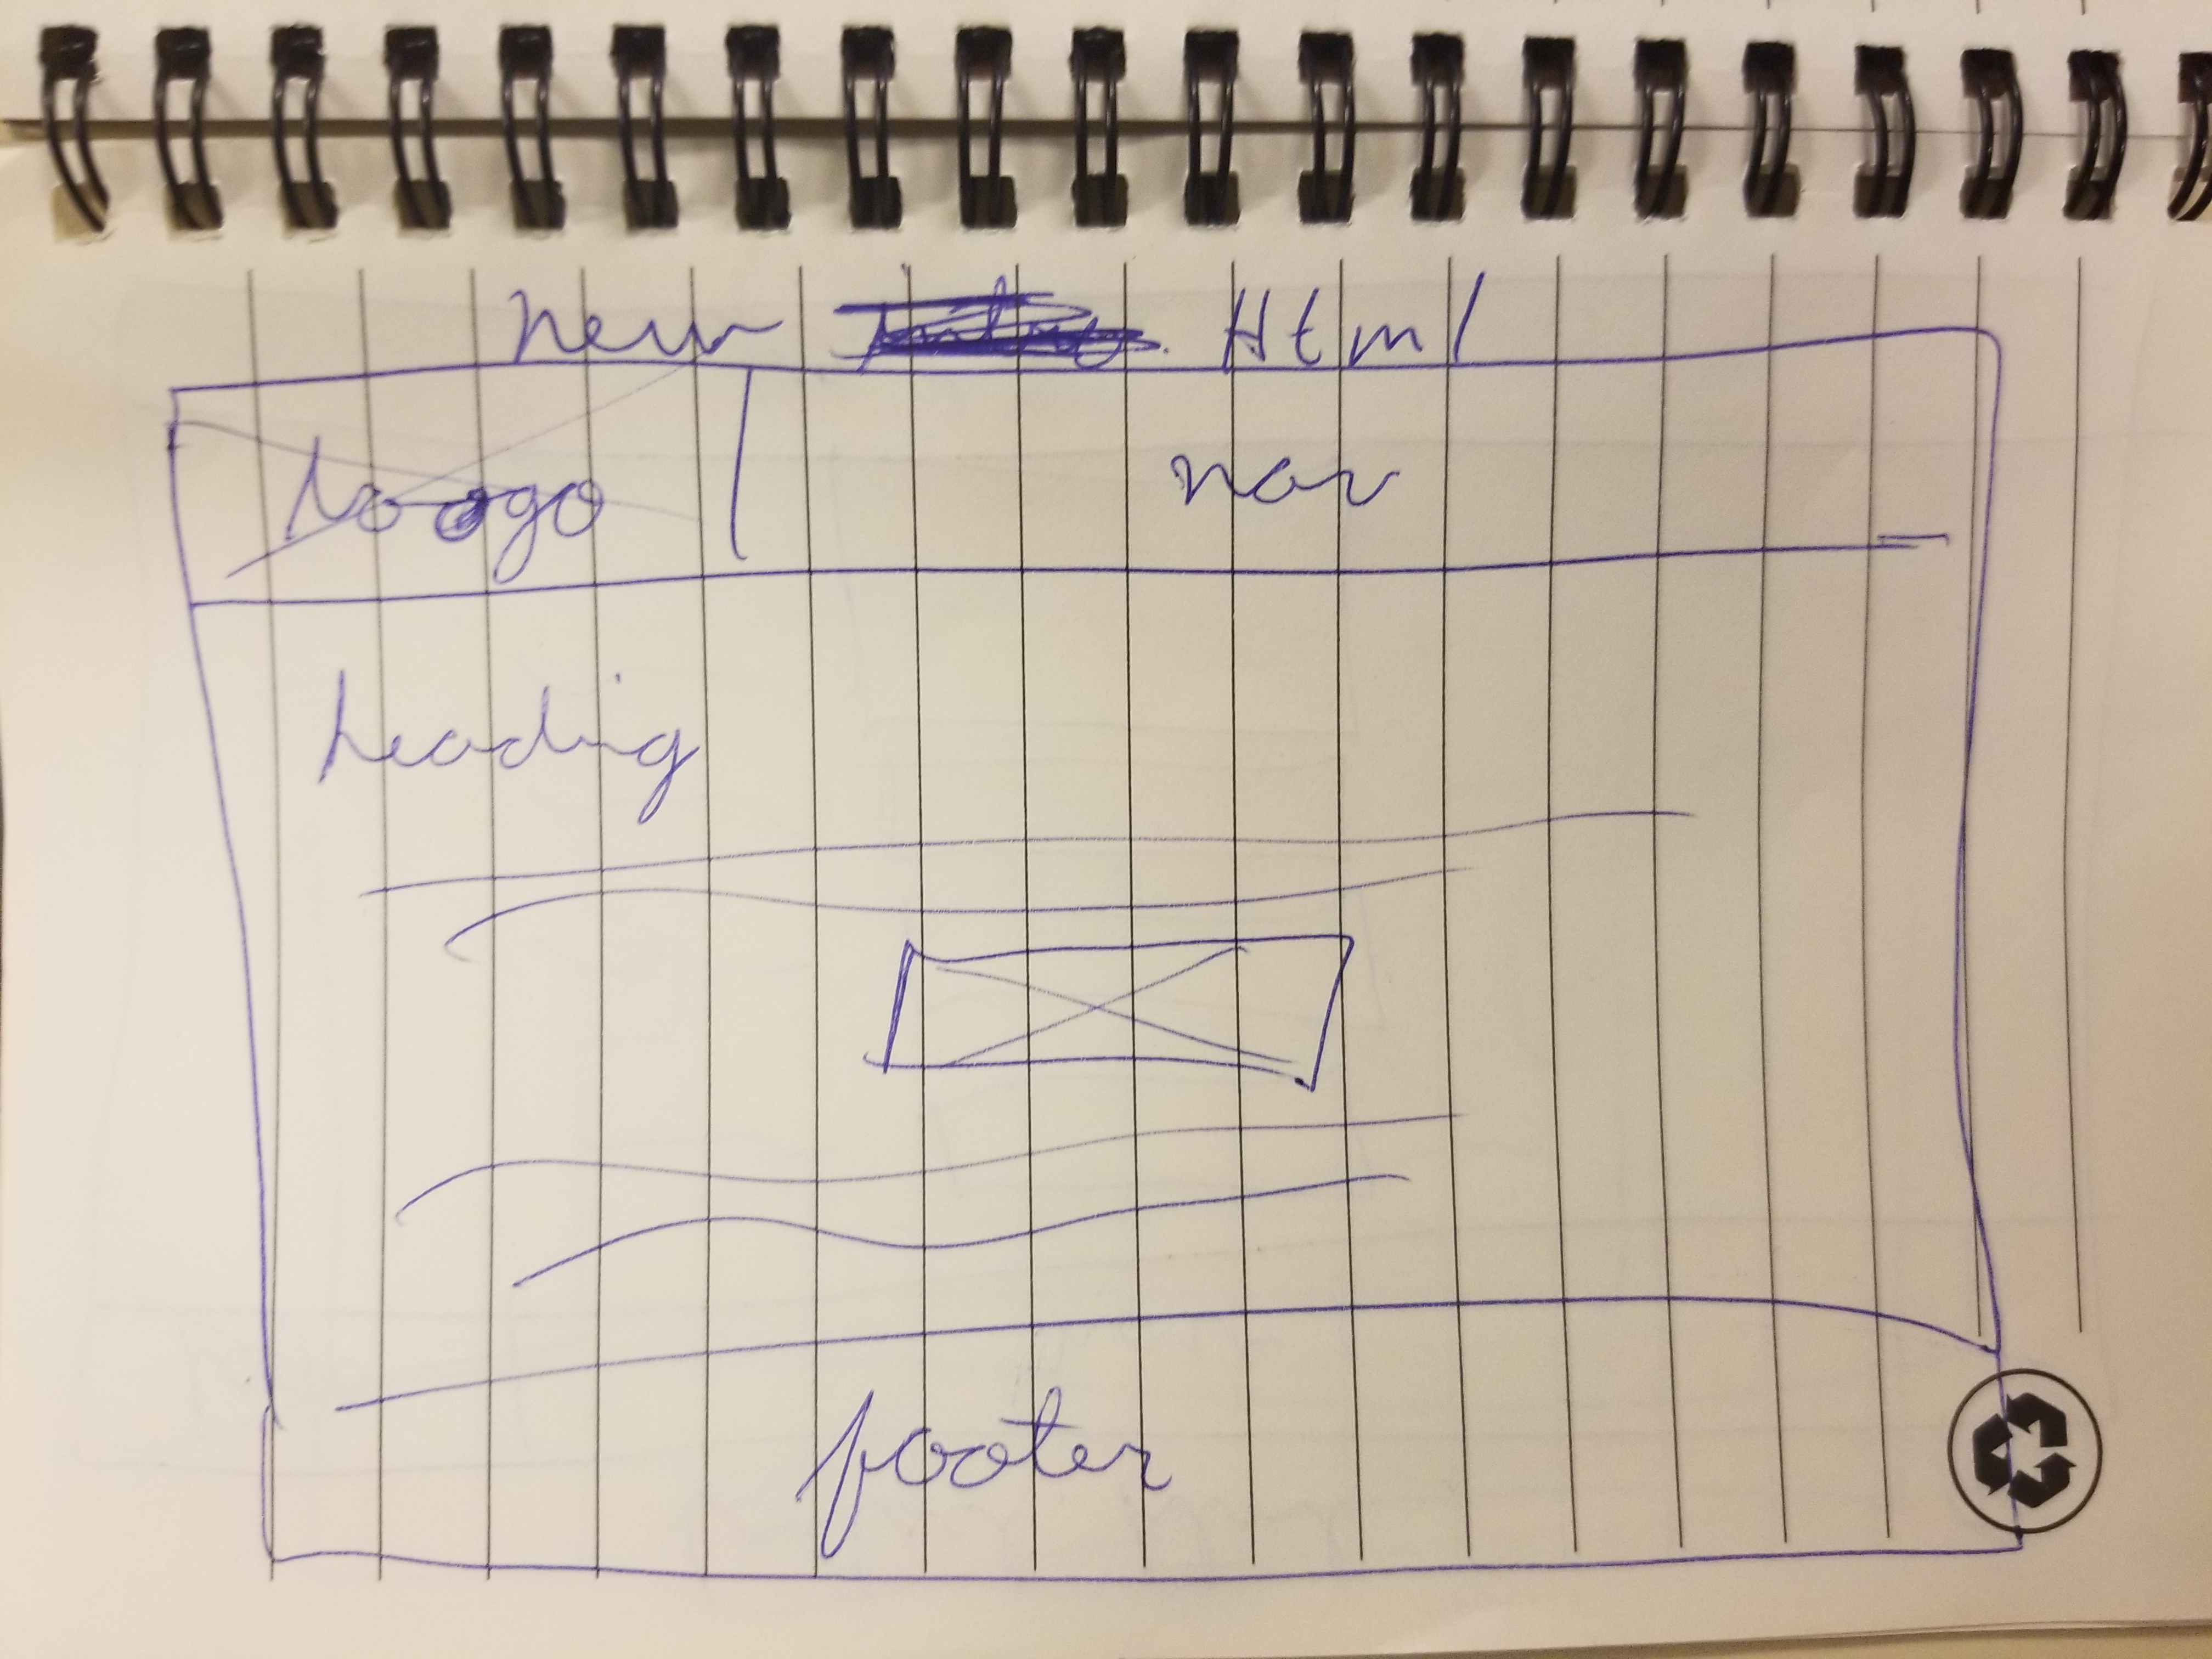 new Html
Logo nav
heading
footer